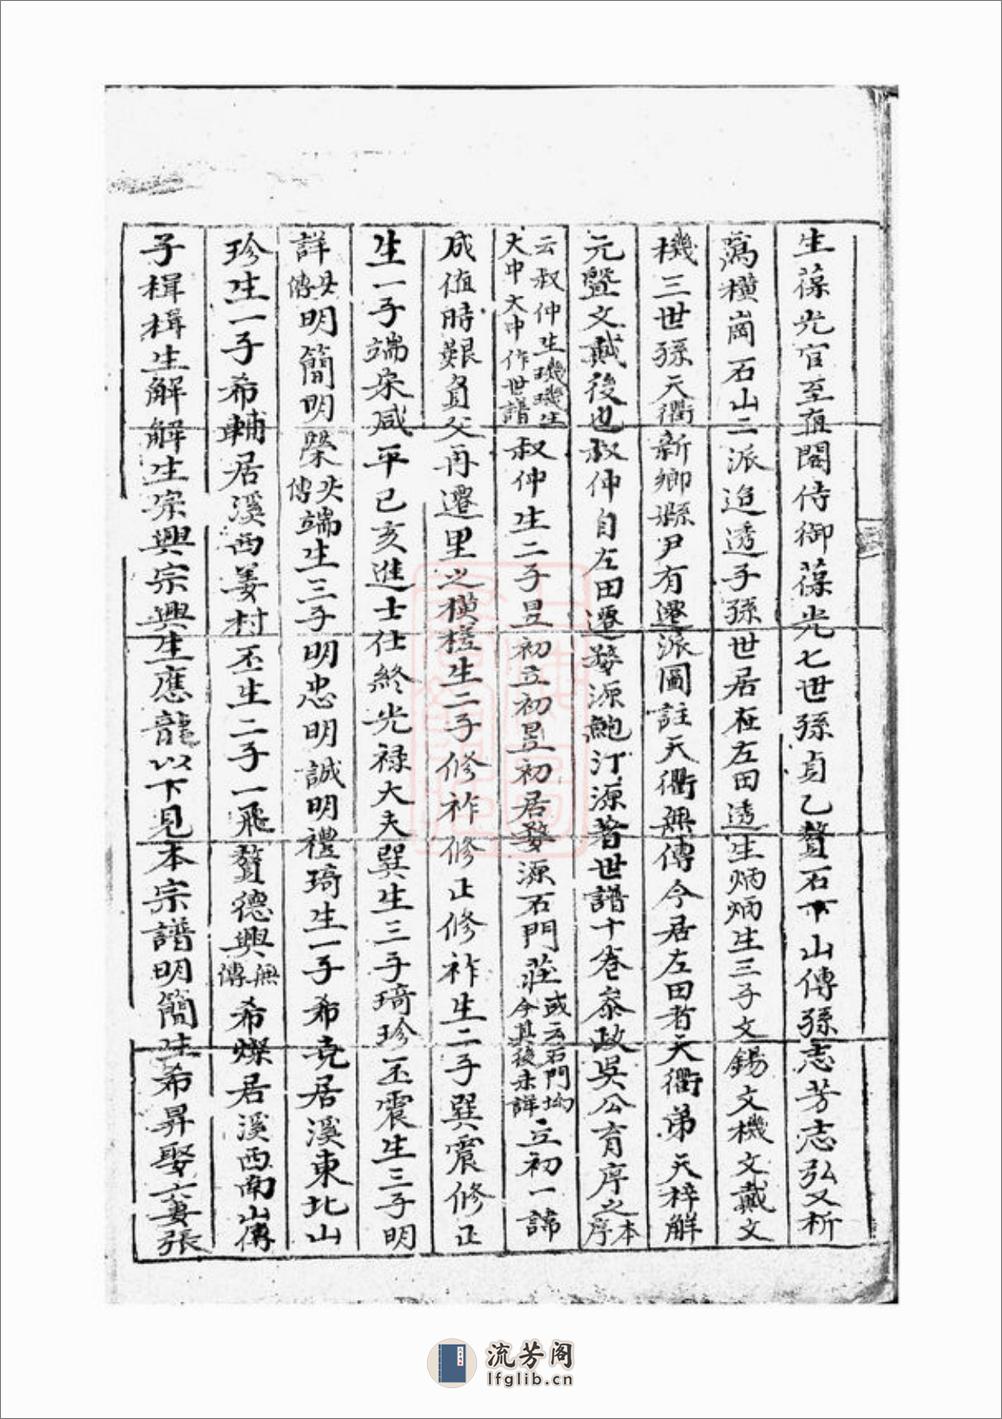 生葆光官至直閣侍御葆光七世孫貞乙贅石下山傳孫志芳志弘又析
為横崗石山二派迨透子孫世居在左田透生炳炳生三子文錫文機文戴文
機三世孫天衢新鄉縣尹有遷派圖註天衢無傳今居左田者天衢弟天梓解
元暨文戴後也叔仲自左田遷婺源鮑汀源著世譜十卷泰政吳公育序之本序
云叔仲生璣璣生大中大中作世譜叔仲生二子昱初立初昱初居婺源石門莊或云石門坳今其後未詳立初一諱
成值時艱負父再遷里之横槎生二子修祚修正修祚生二子巽震修正
生一子端荣咸平己亥進士仕終光禄大夫巽生三子琦珍丕震生三子明
詳明簡明榮端生三子明忠明誠明禮琦生一子希堯居溪東北山
珍生一子希輔居溪西姜村丕生二子一飛贅德興無傳希燦居溪西南山傳
子楫楫生解解生宗興宗興生應龍以下見本宗譜明簡生希昇娶二妻張
流芳阁
lfglib.cn